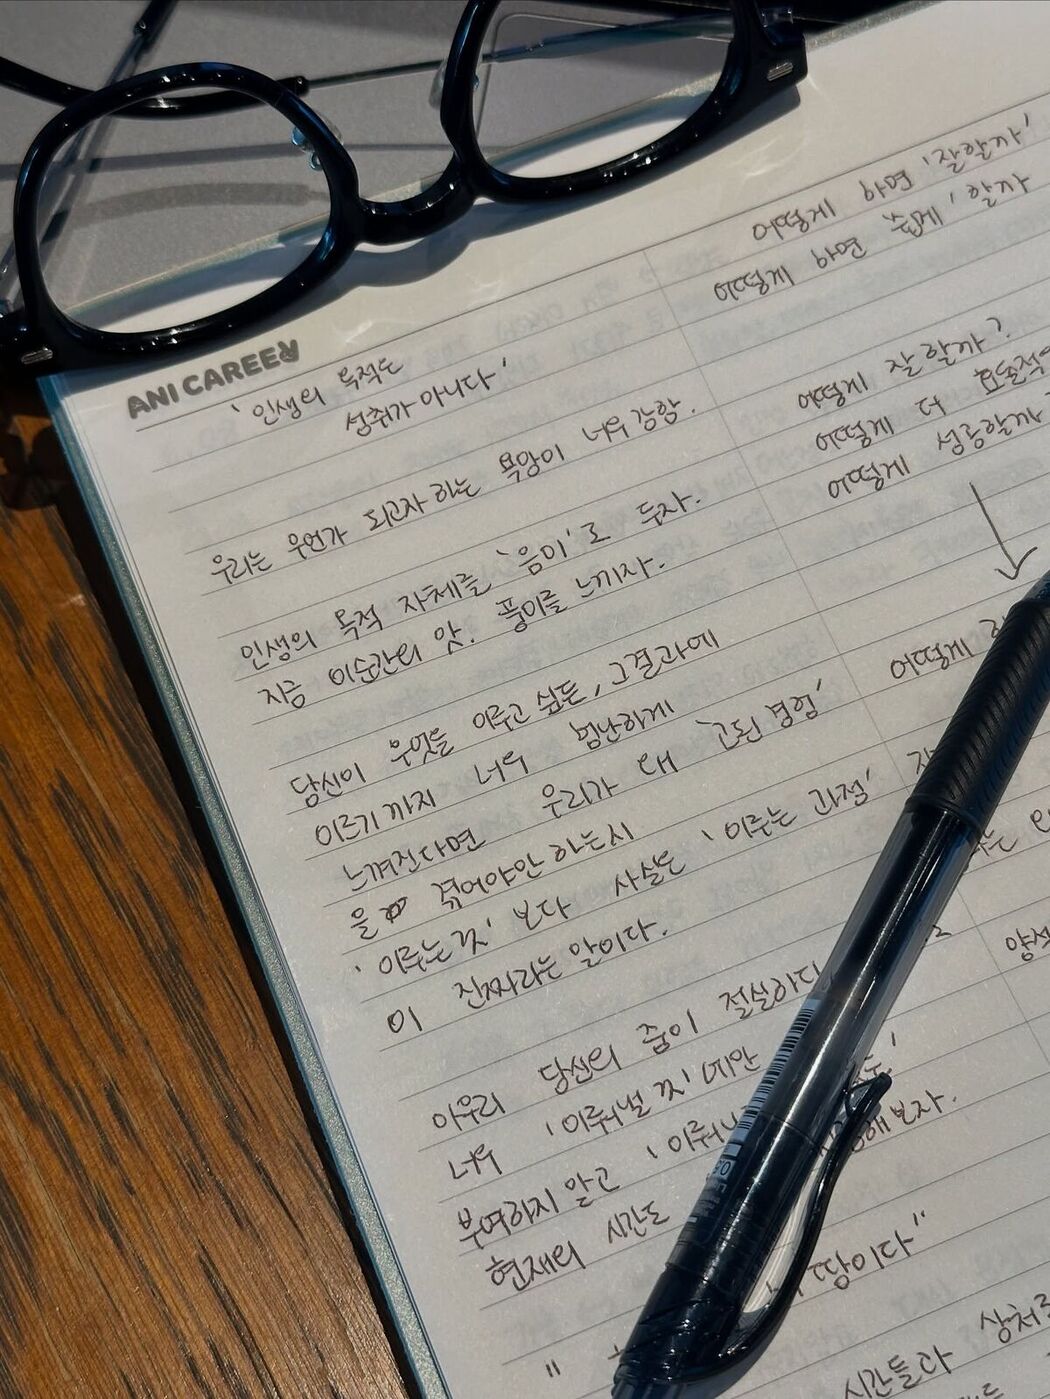 ANI CAREER
'인생의 목적은
성취가 아니다'
우리는 무언가 되고자 하는 욕망이 너무 강함.
인생의 목적 자체를 '음미'로 두자.
지금 이순간의 맛. 풍미를 느끼자.
당신이 무엇을 이루고 싶든, 그 결과에
이르기까지 너무 험난하게
느껴진다면 우리가 왜 '고된 경험'
을 겪어야만 하는지
'이루는 것' 보다 사실은 '이루는 과정'
이 진짜라는 말이다.
아무리 당신의 꿈이 절실하다
너무 '이뤄낼 것'에만
부여하지 말고 '이뤄
현재의 시간도 해보자.
땅이다"
어떻게 하면 '잘할까'
어떻게 하면 '쉽게' 할까
어떻게 잘 할까?
어떻게 더 효율적
어떻게 성공할까
어떻게
양
상처
시간들과